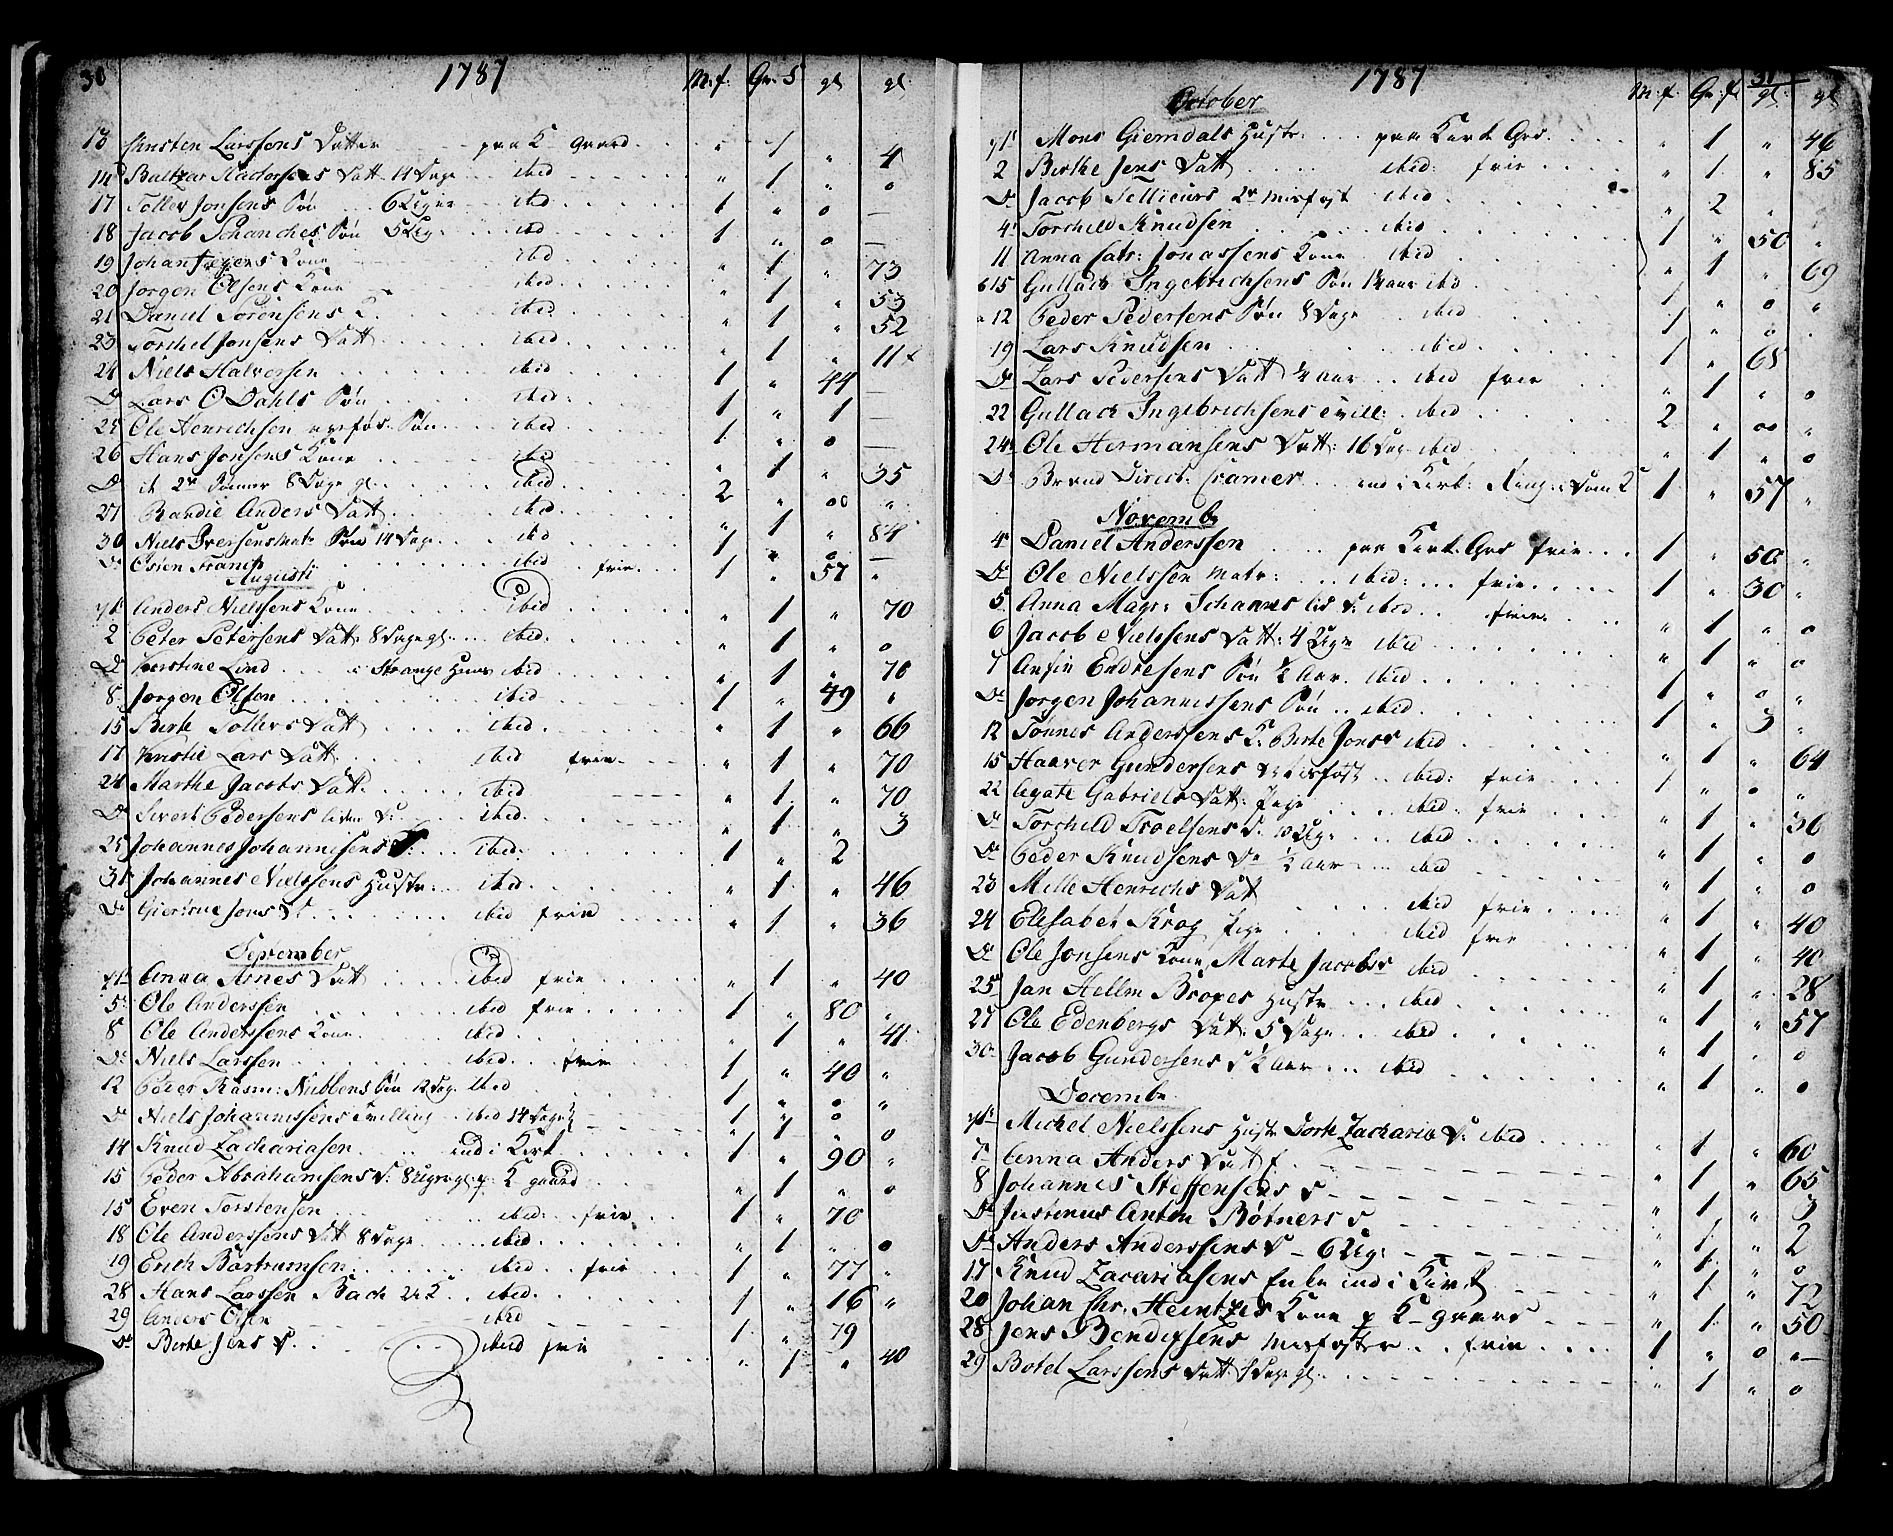 30
1787
M.f. Qv. f gl gl
13 Kirsten Larssens Datter paa K gaard " 1 " 4
14 Baltzar Hadorsens Datt 14 Dage ibid " 1 " 0
17 Toller Jonsens Søn 6 Uger ibd 1 " 0 —
18 Jacob Schanches Søn 5 Ug. ibd 1 " 0 —
19 Johan Kone ibid " 1 " 73
20 Jørgen Olsens Kone ibid " 1 " 53
21 Daniel Sørensens K. ibid " 1 " 52
23 Torchel Jonsens Datt ibid " 1 " 11
24 Niels Halvorsen ibid 1 " 44 —
Do Lars O Dahls Søn ibid 1 " 1 —
25 Ole Henrichsen Søn ibid 1 " 0 —
26 Hans Jonsens Kone ibid " 1 " 35
Do it 2de Sønner 8 Dage gl. ibid 2 " 00 "
27 Randie Anders Datt ibid " 1 " 84
30 Niels Iversens Søn 14 Dage ibd 1 " 0 —
Do Østen Frantz ibid frie 1 " 57 "
Augusti
1 Anders Nielssens Kone ibid " 1 " 70
2 Peter Petersens Datt: 8 Dage gl. ibid " 1 " 0
Do Kirstine Lind i Strange Huus ibid " 1 " 70
8 Jørgen Olsen ibid 1 " 49 "
15 Berte Tollevs Datt ibid " 1 " 66
17 Kristie Lars Datt ibid frie " 1 " 70
24 Marthe Jacobs Datt. ibid " 1 " 70
Do Sivert Pedersens liden D: ibid " 1 " 3
25 Johannes Johannesens S: ibid. 1 " 2
31 Johannes Nielssens Hustr. ibid " 1 " 46
Do Giertrue Jens D. ibid frie " 1 " 36
September
1 Anna Arnes Datt ibid frie " 1 " 40
5 Ole Anderssen ibid frie 1 " 80 "
8 Ole Anderssens Kone ibid " 1 " 41
Do Niels Larssen ibid frie 1 " 40 "
12 Peder Rasm: Nubbens Søn 12 Dag. ibid 1 " 0 "
Do Niels Johannissens Tvilling ibid 14 Dage 1 1 0 0
14 Knud Zachariasen ind i Kirk 1 " 90 "
15 Peder Abrahamsens D: 8 Uger gl. p. K gaard " 1 " 0
15 Even Torstensen ibid frie 1 " 70
18 Ole Anderssens Datt 8 Dage ibid " 1 " 0
19 Erich Bårtrumsen ibid frie 1 " 77 "
28 Hans Larssen Bach ibid. 1 " 16 "
29 Anders Olsen ibid 1 " 79
Do Berte Jens D. ibid frie " 1 " 40
31
1787
M.f. Qv.f. gl. gl
October
1 Mons Giemdals Hustr. paa Kirk Grd. " 1 " 46
2 Berthe Jens Datt ibid: frie " 1 " 85
Do Jacob Sellieurs 2de Misfost ibid " 2 " "
4 Torchild Knudsen ibid 1 " 50 "
11 Anna Catr: Jonassens Kone ibid " 1 " 69
15 Gullach Ingebrichsens Søn 1½ aar ibid 1 " 0 "
12 Peder Pedersens Søn 8 Dage ibid 1 " 0 "
19 Lars Knudsen ibid 1 " 68
Do Lars Pedersens Datt ¼ aar ibid frie " 1 " 0
22 Gullach Ingebrichsens tvill: ibid 2 " 00 "
24 Ole Hermansens Datt: 16 Dag ibid " 1 " 0
Do Brand Direct. Cramer ind i Kirk: 1 " 57 "
Novemb
4 Daniel Anderssen paa Kirk. Grd frie 1 " 50 "
Do Ole Nielssen Matr: ibid: frie 1 " 30 "
5 Anna Magr: Johannes lid D: ibid frie " 1 " 0
6 Jacob Nielssens Datt: 4 Uge ibid " 1 " 0
7 Anfin Endresens Søn ½ Aar. ibid 1 " 0 "
Do Jørgen Johannessens Søn ibid 1 " 3 "
12 Tønnes Anderssens K: Berte Jons D ibid " 1 " 64
15 Haaver Gundersens Misfost ibid: frie 1 " 0 "
22 Agate Gabriels Datt: Pige ibid: frie " 1 " 36
Do Torchild Troelsens D. 10 Uge ibid " 1 " 0
Do Peder Knudsens Dr ½ aar ibid " 1 " 0
23 Mille Henrichs Datt ibid frie " 1 " 40
24 Elisabet Krog Pige ibid frie " 1 " 40
Do Ole Jonsens Kone Marte Jacobs D ibid " 1 " 28
25 Jan Hellm Bropes Hustr ibid " 1 " 57
27 Ole Edenbergs Datt: 5 Dage ibid " 1 " 0
30 Jacob Gundersens D 2 aar ibid " 1 " 0
Decembr.
1 Michel Nielssens Hustr Dorte Zacharia D: ibid " 1 " 60
7 Anna Anders Datt f. " 1 " 65
8 Johannes Steffensens D " 1 " 3
Do Justinus Anton Bøtners D. " 1 " 2
Do Anders Anderssens D – 6 Ug: " 1 " 0
17 Knud Zacariasens Enke ind i Kirk " 1 " 72
20 Johan Chr. Heintzes Kone p K– gaard " 1 " 50
28 Jens Bendixsens Misfoster frie 1 " 0 "
29 Botel Larssens Datt. 8 Dage gl. " 1 " 0